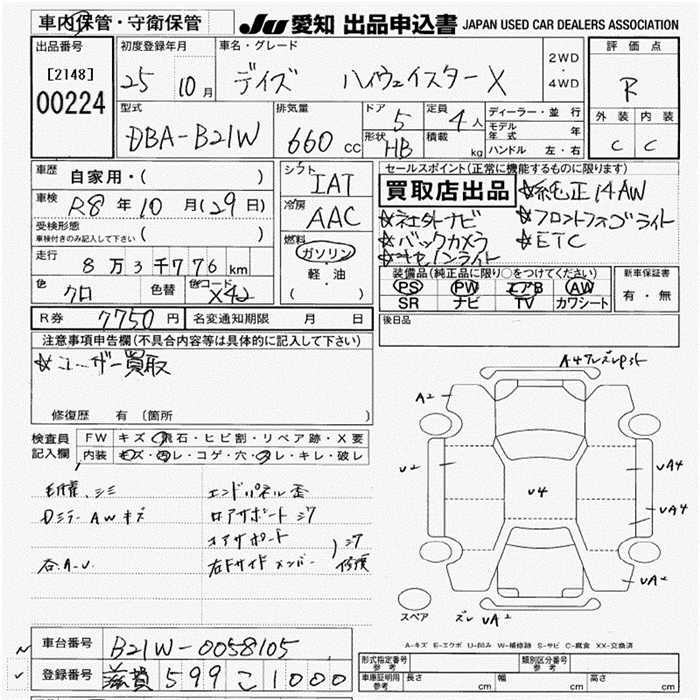 車内保管・守衛保管
JU 愛知 出品申込書 JAPAN USED CAR DEALERS ASSOCIATION
出品番号 [2148] 00224
初度登録年月 25 10月
車名・グレード デイズ ハイウェイスターX
2WD・4WD
評価点 R
外装 C 内装 C
型式 DBA-B21W
排気量 660 cc
ドア 5 定員 4人
形状 HB 積載 kg
ディーラー・並行
モデル年式 年
ハンドル 左・右
車歴 自家用・( )
車検 R8年10月(29日)
受検形態 車検付きのみ記入して下さい ( )
走行 8万3千776km
色 クロ 色替 色コード X42
シフト IAT
冷房 AAC
燃料 ガソリン・軽・油 ( )
セールスポイント(正常に機能するものに限ります)
買取店出品 ☆純正14AW
☆社外ナビ ☆フロントフォグライト
☆バックカメラ ☆ETC
☆キセノンライト
装備品(純正品に限り○をつけてください)
PS PW エアB AW
SR ナビ TV カワシート
新車保証書 有・無
R券 7750円 名変通知期限 月 日
後日品
注意事項申告欄(不具合内容等は具体的に記入して下さい)
☆ユーザー買取
修復歴 有(箇所 )
検査員記入欄
FW キズ・飛石・ヒビ割・リペア跡・X要
内装 キズ・汚レ・コゲ・穴・スレ・キレ・破レ
エンドパネル歪
Dミラー AWキズ
コアサポート
右.A-U
A2
U2
U4
UA4
UA4
UA2
ズレ UA2
スペア
A-キズ E-エクボ U-凹み W-補修跡 S-サビ C-腐食 XX-交換済
車台番号 B21W-0058105
登録番号 滋賀 599 こ 1000
形式指定番号 参考 類別区分番号 参考
車庫証明用 参考 長さ cm 幅 cm 高さ cm